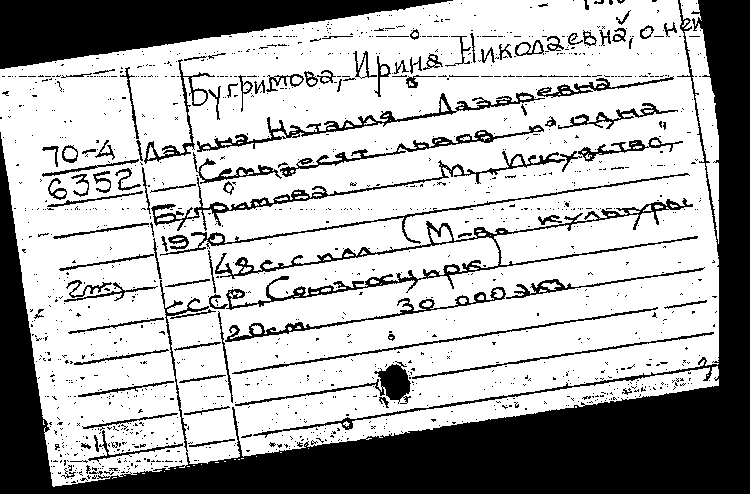 Бугримова, Ирина Николаевна, о ней
70-4 Лагина, Наталия Лазаревна
6352 Семьдесят львов и одна
Бугримова. М., "Искусство",
1970.
48 с. с илл. (М-во культуры
2тз
СССР. Союзгосцирк).
20 см. 30 000 экз.